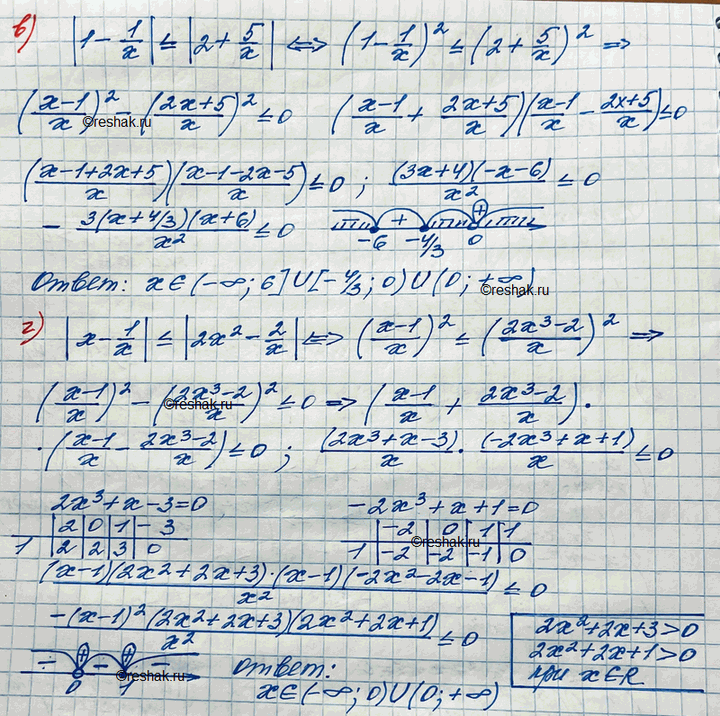 в) |1 - 1/x| ≤ |2 + 5/x| ⟺ (1 - 1/x)² ≤ (2 + 5/x)² ⇒
((x-1)/x)² - ((2x+5)/x)² ≤ 0   ((x-1)/x + (2x+5)/x)((x-1)/x - (2x+5)/x) ≤ 0
©reshak.ru
((x-1+2x+5)/x)((x-1-2x-5)/x) ≤ 0 ; (3x+4)(-x-6)/x² ≤ 0
- 3(x+4/3)(x+6)/x² ≤ 0   + +
-6 -4/3 0
Ответ: x∈(-∞; 6]∪[-4/3; 0)∪(0; +∞)
©reshak.ru
г) |x - 1/x| ≤ |2x² - 2/x| ⟺ ((x-1)/x)² ≤ ((2x³-2)/x)² ⇒
((x-1)/x)² - ((2x³-2)/x)² ≤ 0 ⇒ ((x-1)/x + (2x³-2)/x)·
©reshak.ru
·((x-1)/x - (2x³-2)/x) ≤ 0 ; (2x³+x-3)/x · (-2x³+x+1)/x ≤ 0
2x³+x-3=0   -2x³+x+1=0
| 2 | 0 | 1 | -3   | -2 | 0 | 1 | 1
1 | 2 | 2 | 3 | 0   1 | -2 | -2 | -1 | 0
©reshak.ru
(x-1)(2x²+2x+3)·(x-1)(-2x²-2x-1)/x² ≤ 0
-(x-1)²(2x²+2x+3)(2x²+2x+1)/x² ≤ 0
2x²+2x+3>0
2x²+2x+1>0
при x∈R
- + - + -
0 1
©reshak.ru
Ответ:
x∈(-∞; 0)∪(0; +∞)